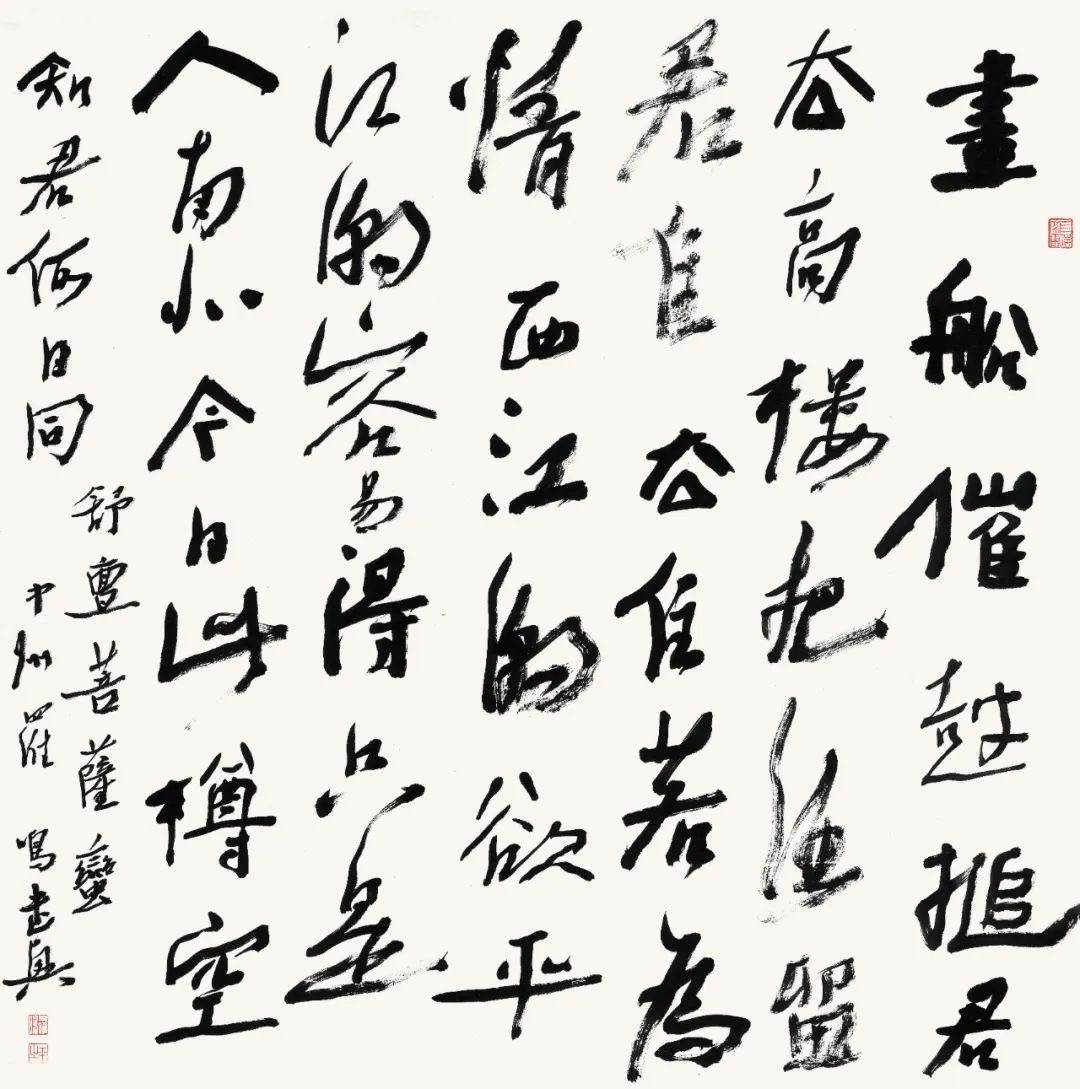 畫船催鼓搥君
去高樓把酒留
君住去住若為
情西江潮欲平
江潮容易得只是
人南北今日此樽空
知君何日同
舒亶菩薩蠻
中州羅鳴書